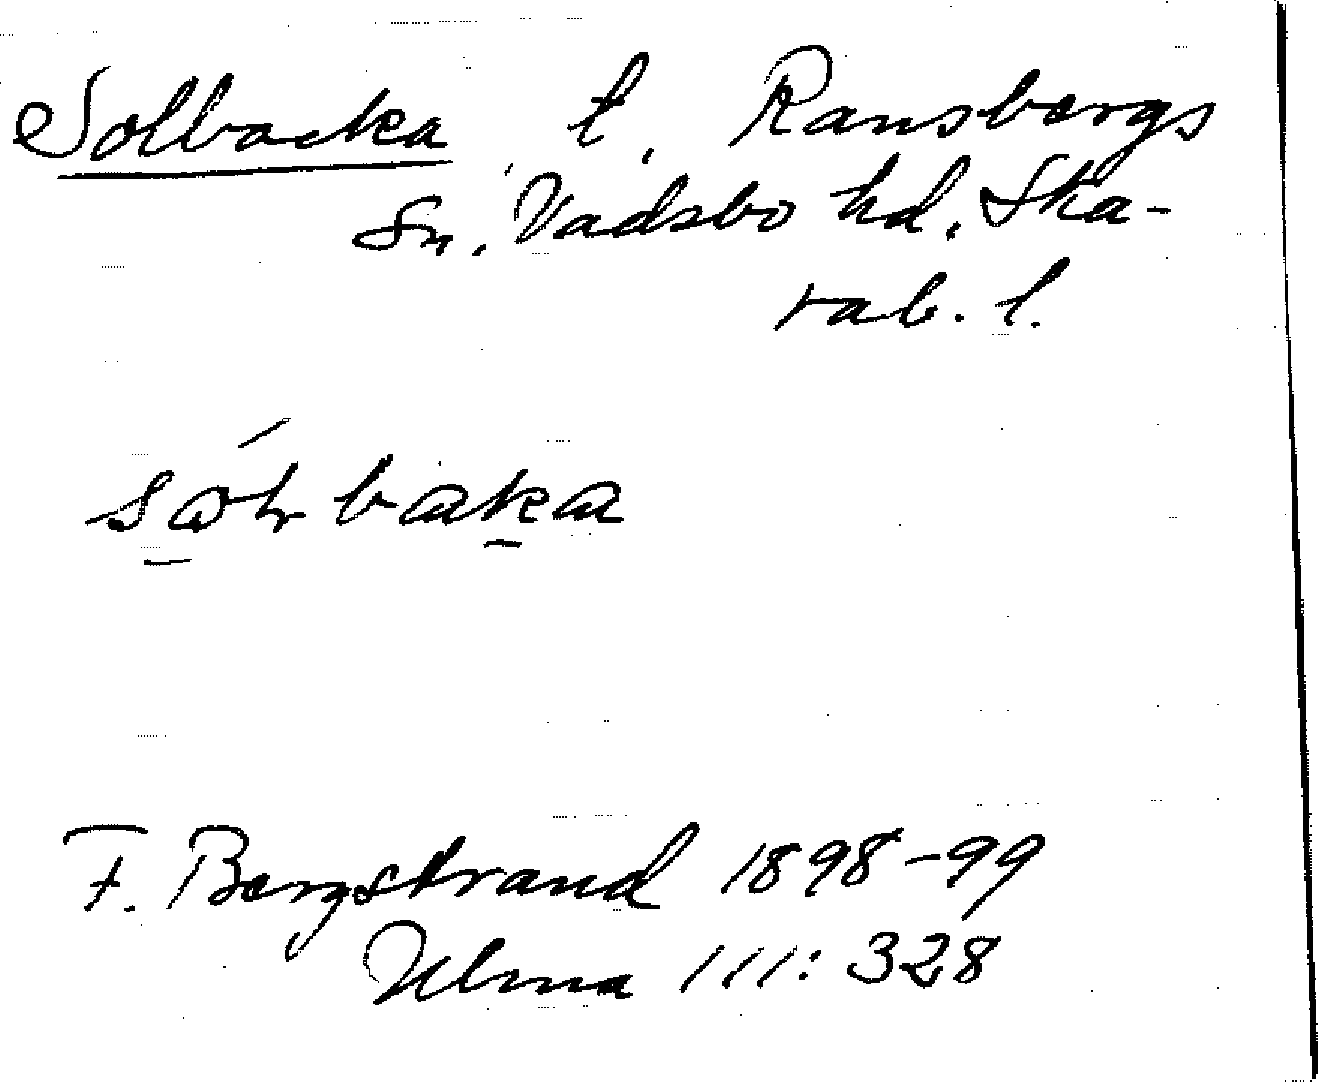 Solbacka, t. Ransbergs
Sn. Vadsbo hd. Ska-
rab. l.
F. Bergstrand 1898-99
Ulma 111: 328